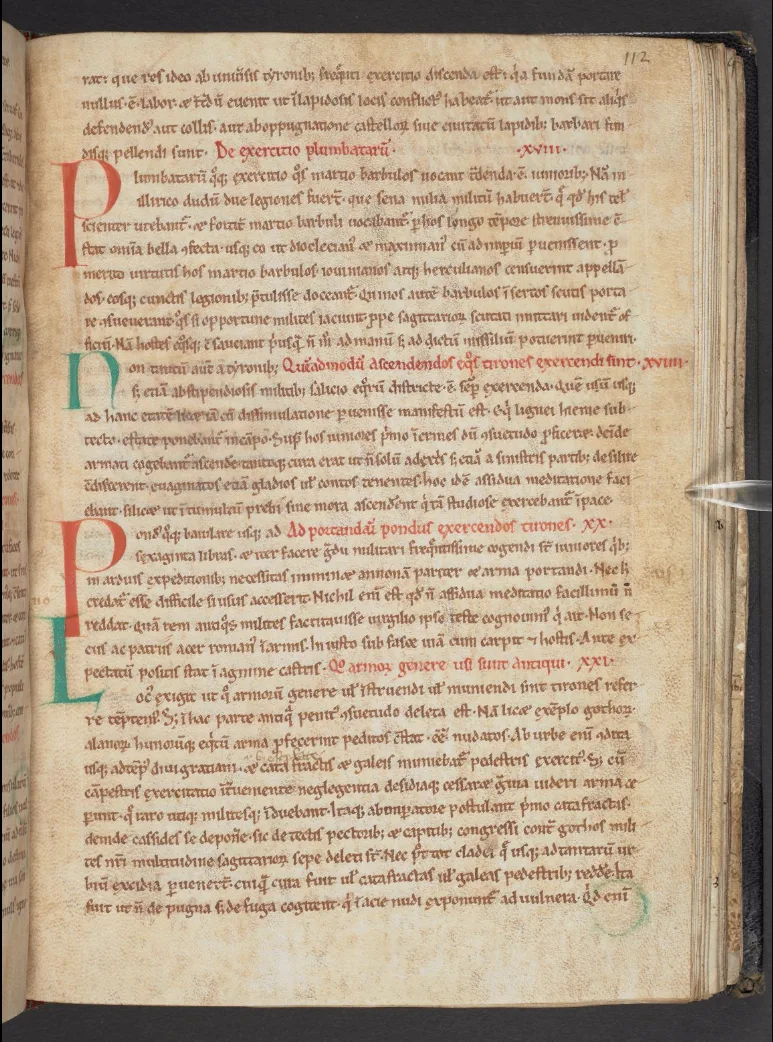 112
rat; que res ideo ab uniũsis tyronib; freq̃nti exercitio discenda est; q̃a fundã portare
nullus ẽ labor. & sẽdũ euenit ut ĩ lapidosis locis conflictꝰ habeat̃. ut aut mons sit aliq̃s
defendendꝰ aut collis. aut ab oppugnatione castelloꝝ siue ciuitatũ lapidib; barbari fun
disq; pellendi sunt. De exercitio plumbatarũ. .xviii.
Plumbatarũ q̃q; exercitio q̃s martio barbulos uocant t̃denda ẽ iuniorib; Nã in
illirico dudũ due legiones fuer̃t. que sena milia militũ habuer̃t. q̃ qđ his tel̃
scienter utebant̃. & fortit̃ martio barbuli uocabant̃. p̱ hos longo tẽpore strenuissime ẽ
stat omĩa bella ꝯfecta. usq; eo ut dioclecianꝰ & maximianꝰ cũ ad imp̱iũ p̱uenissent. p̱
merito uirtutis hos martio barbulos iouinianos atq; herculianos censuerint appellã
dos. eosq; cunctis legionib; p̃tulisse doceant̃. Quinos autẽ barbulos ĩsertos scutis porta
re ꝯsueuerant. q̃s si opportune milites iaciunt. ꝓpe sagittarioꝝ scutati imitari uident̃ of
ficiũ. Nã hostes eq̃sq; ẽsauciant p̃usquã ñ m̃ ad manũ s; ad ictũ missiliũ potuerint p̱ueniri.
Non tantũ aut̃ a tyronib; Quẽadmodũ ascendendos eq̃s tirones exercendi sint. .xviiii.
s; etiã ab stipendiosis militib; salicio eq̃rũ districte ẽ sẽp̱ exercenda. Quẽ usũ usq;
ad hanc etatẽ licet iã cũ dissimulatione p̱uenisse manifestũ est. Eq̃ lignei hieme sub
tecto. estate ponebant̃ in cãpo. Sup̱ hos iuniores p̃mo ĩermes dũ ꝯsuetudo ꝓficeret. deĩde
armati cogebant̃ ascendere. tantaq; cura erat ut ñ solũ a dext̃s s; etiã a sinistris partib; desilire
ẽdiscerent. euaginatos etiã gladios ul̃ contos tenentes. hoc idẽ assidua meditatione faci
ebant. silicæ ut ĩ tumultũ prelii sine mora ascend̃ent q̃ tã studiose exercebant̃ ĩ pace.
Pondꝰ q̃q; baiulare usq; ad Ad portandũ pondus exercendos tirones. XX.
sexaginta libras. & iter facere g̃du militari freq̃ntissime cogendi st̃ iuniores q̃b;
in arduis expeditionib; necessitas imminet annonã pariter & arma portandi. Nec h̃
credat̃ esse difficile si usus accesserit. Nichil eni est qđ ñ assidua meditatio facillimũ ñ
reddat. Quã rem antiq̃s milites factitauisse uirgilio ipso teste cognouimꝰ q̃ ait. Non se
cus ac patriis acer romanꝰ ĩ armis. Iniusto sub fasce uiã cum carpit & hosti. Ante ex
pectatũ positis stat ĩ agmine castris. Qo armoꝝ genere usi sunt antiqui. XXI.
Locꝰ exigit ut q̃ armorũ genere ul̃ ĩstruendi ul̃ muniendi sint tirones refer
re tẽptemꝰ. S; ĩ hac parte antiq̃ penitꝰ ꝯsuetudo deleta est. Nã licæ exẽplo gothoꝝ
alanoꝝ hunorũq; eq̃tũ arma ꝓfecerint peditos ꝯstat ẽẽ nudatos. Ab urbe enĩ ꝯdita
usq; ad tẽpꝰ diui gratiani. & cata fractis & galeis muniebat̃ pedestris exercitꝰ. S; cũ
cãpestris exercitatio ĩt̃ueniente neglegentia desidiaq; cessaret. g̃uia uideri arma cę
perunt. q̃ raro utiq; militesq; ĩduebant. Itaq; ab imp̱atore postulant p̃mo catafractis.
deinde cassides se deponẽ. sic detectis pectorib; & capitib; congressi cont̃ gothos mili
tes nr̃i multitudine sagittarioꝝ sepe deleti st̃. Nec p̃t tot clades q̃ usq; ad tantarũ ur
biũ excidia p̱uener̃t. cuiq̃ cura fuit ul̃ catafractas ul̃ galeas pedestrib; redde. Ita
fuit ut ñ de pugna s; de fuga cogitent. q̃ ĩ acie nudi exponunt̃ ad uulnera. Qđ enĩ